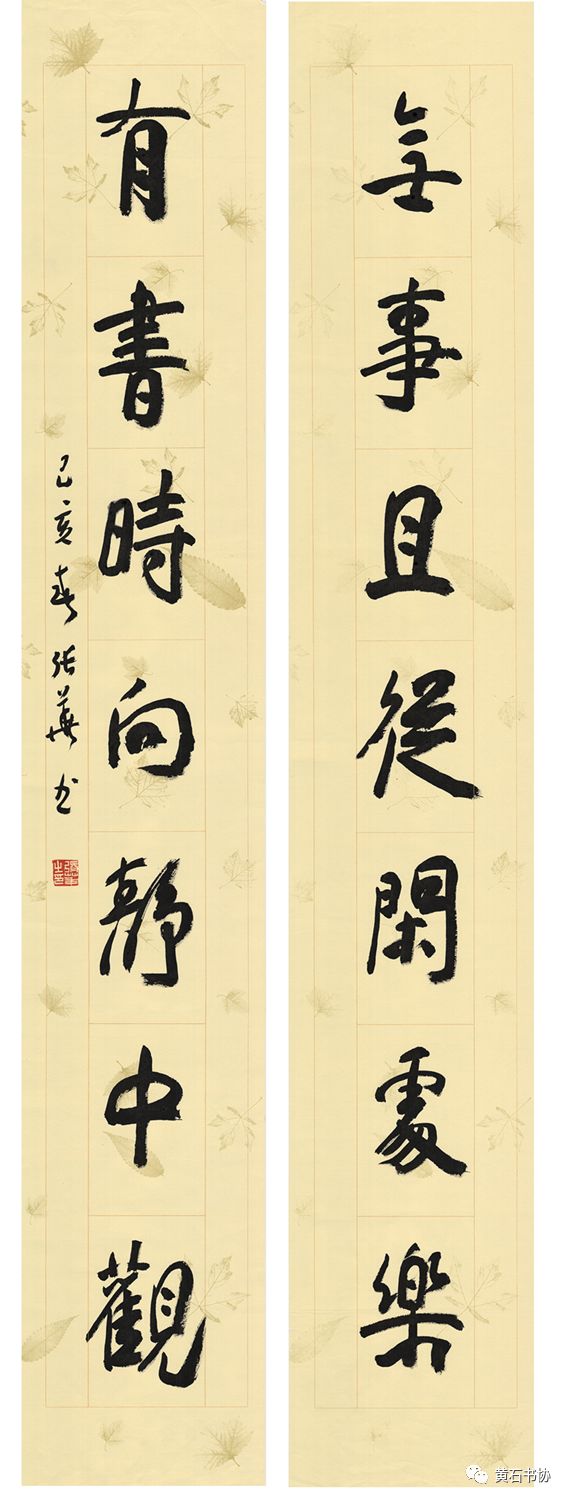 無事且從閑處樂
有書時向靜中觀
己亥春張華书
張華之印
黄石书协